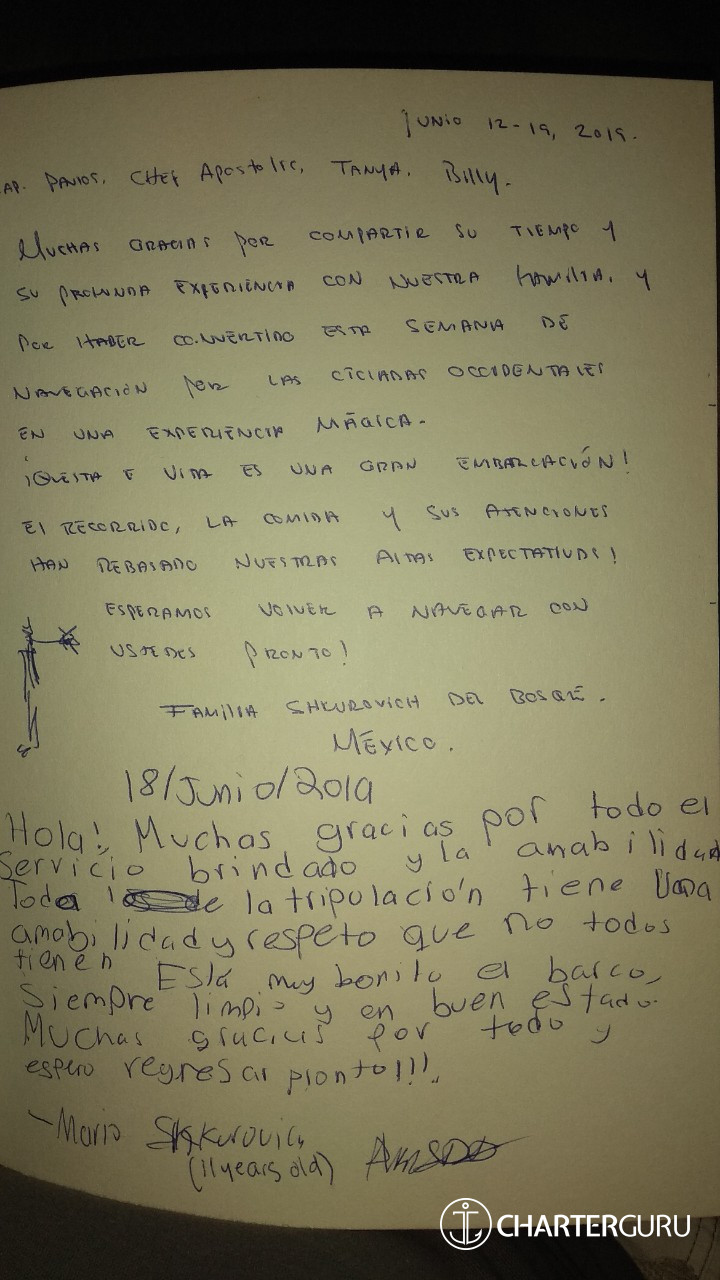 JUNIO 12-19, 2019.
AP. PANOS, CHEF APOSTOLIS, TANYA, BILLY.
MUCHAS GRACIAS POR COMPARTIR SU TIEMPO Y
SU PROFUNDA EXPERIENCIA CON NUESTRA FAMILIA, Y
POR HABER CONVERTIDO ESTA SEMANA DE
NAVEGACIÓN POR LAS CÍCLADAS OCCIDENTALES
EN UNA EXPERIENCIA MÁGICA.
¡QUESTA E VITA ES UNA GRAN EMBARCACIÓN!
EL RECORRIDO, LA COMIDA Y SUS ATENCIONES
HAN REBASADO NUESTRAS ALTAS EXPECTATIVAS!
ESPERAMOS VOLVER A NAVEGAR CON
USTEDES PRONTO!
FAMILIA SHKUROVICH DEL BOSQUE.
MÉXICO.
18/Junio/2019
Hola!, Muchas gracias por todo el
Servicio brindado y la amabilidad
Toda de la tripulación tiene una
amabilidad y respeto que no todos
tienen Está muy bonito el barco,
Siempre limpio y en buen estado.
Muchas gracias por todo y
espero regresar pronto!!!.
-Mario Shkurovich
(11 years old)
CHARTERGURU